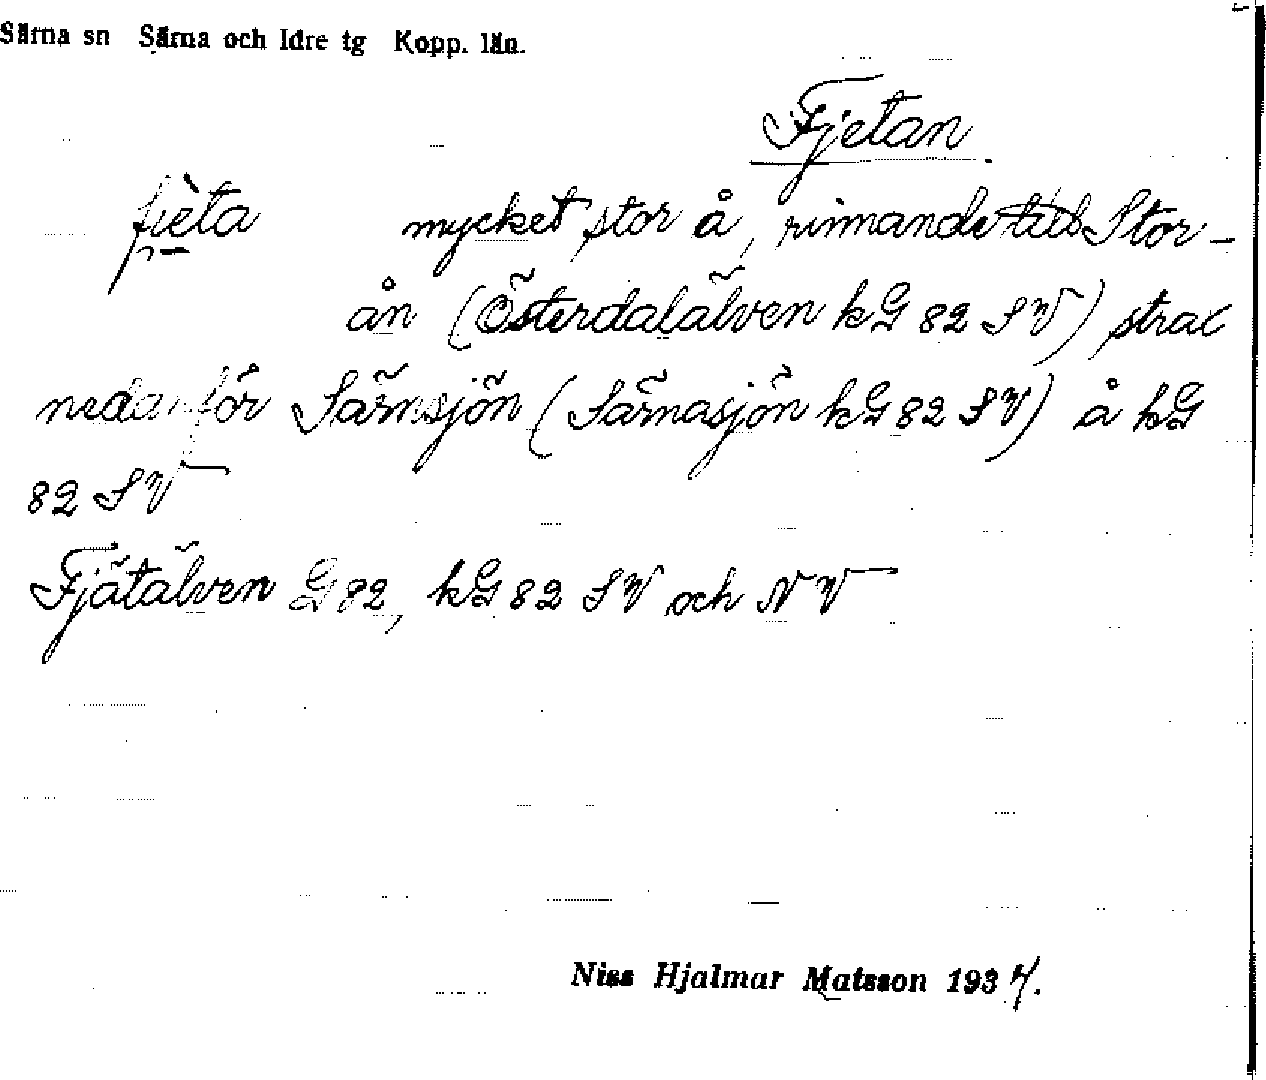 Särna sn Särna och Idre tg Kopp. län.
Fjetan
fi̯èta mycket stor å, rinnande till Stor-
ån (Österdalälven kG 82 SV) strax
nedanför Särnsjön (Särnasjön kG 82 SV) å kG
82 SV
Fjätälven G 82, kG 82 SV och NV
Niss Hjalmar Matsson 1937.